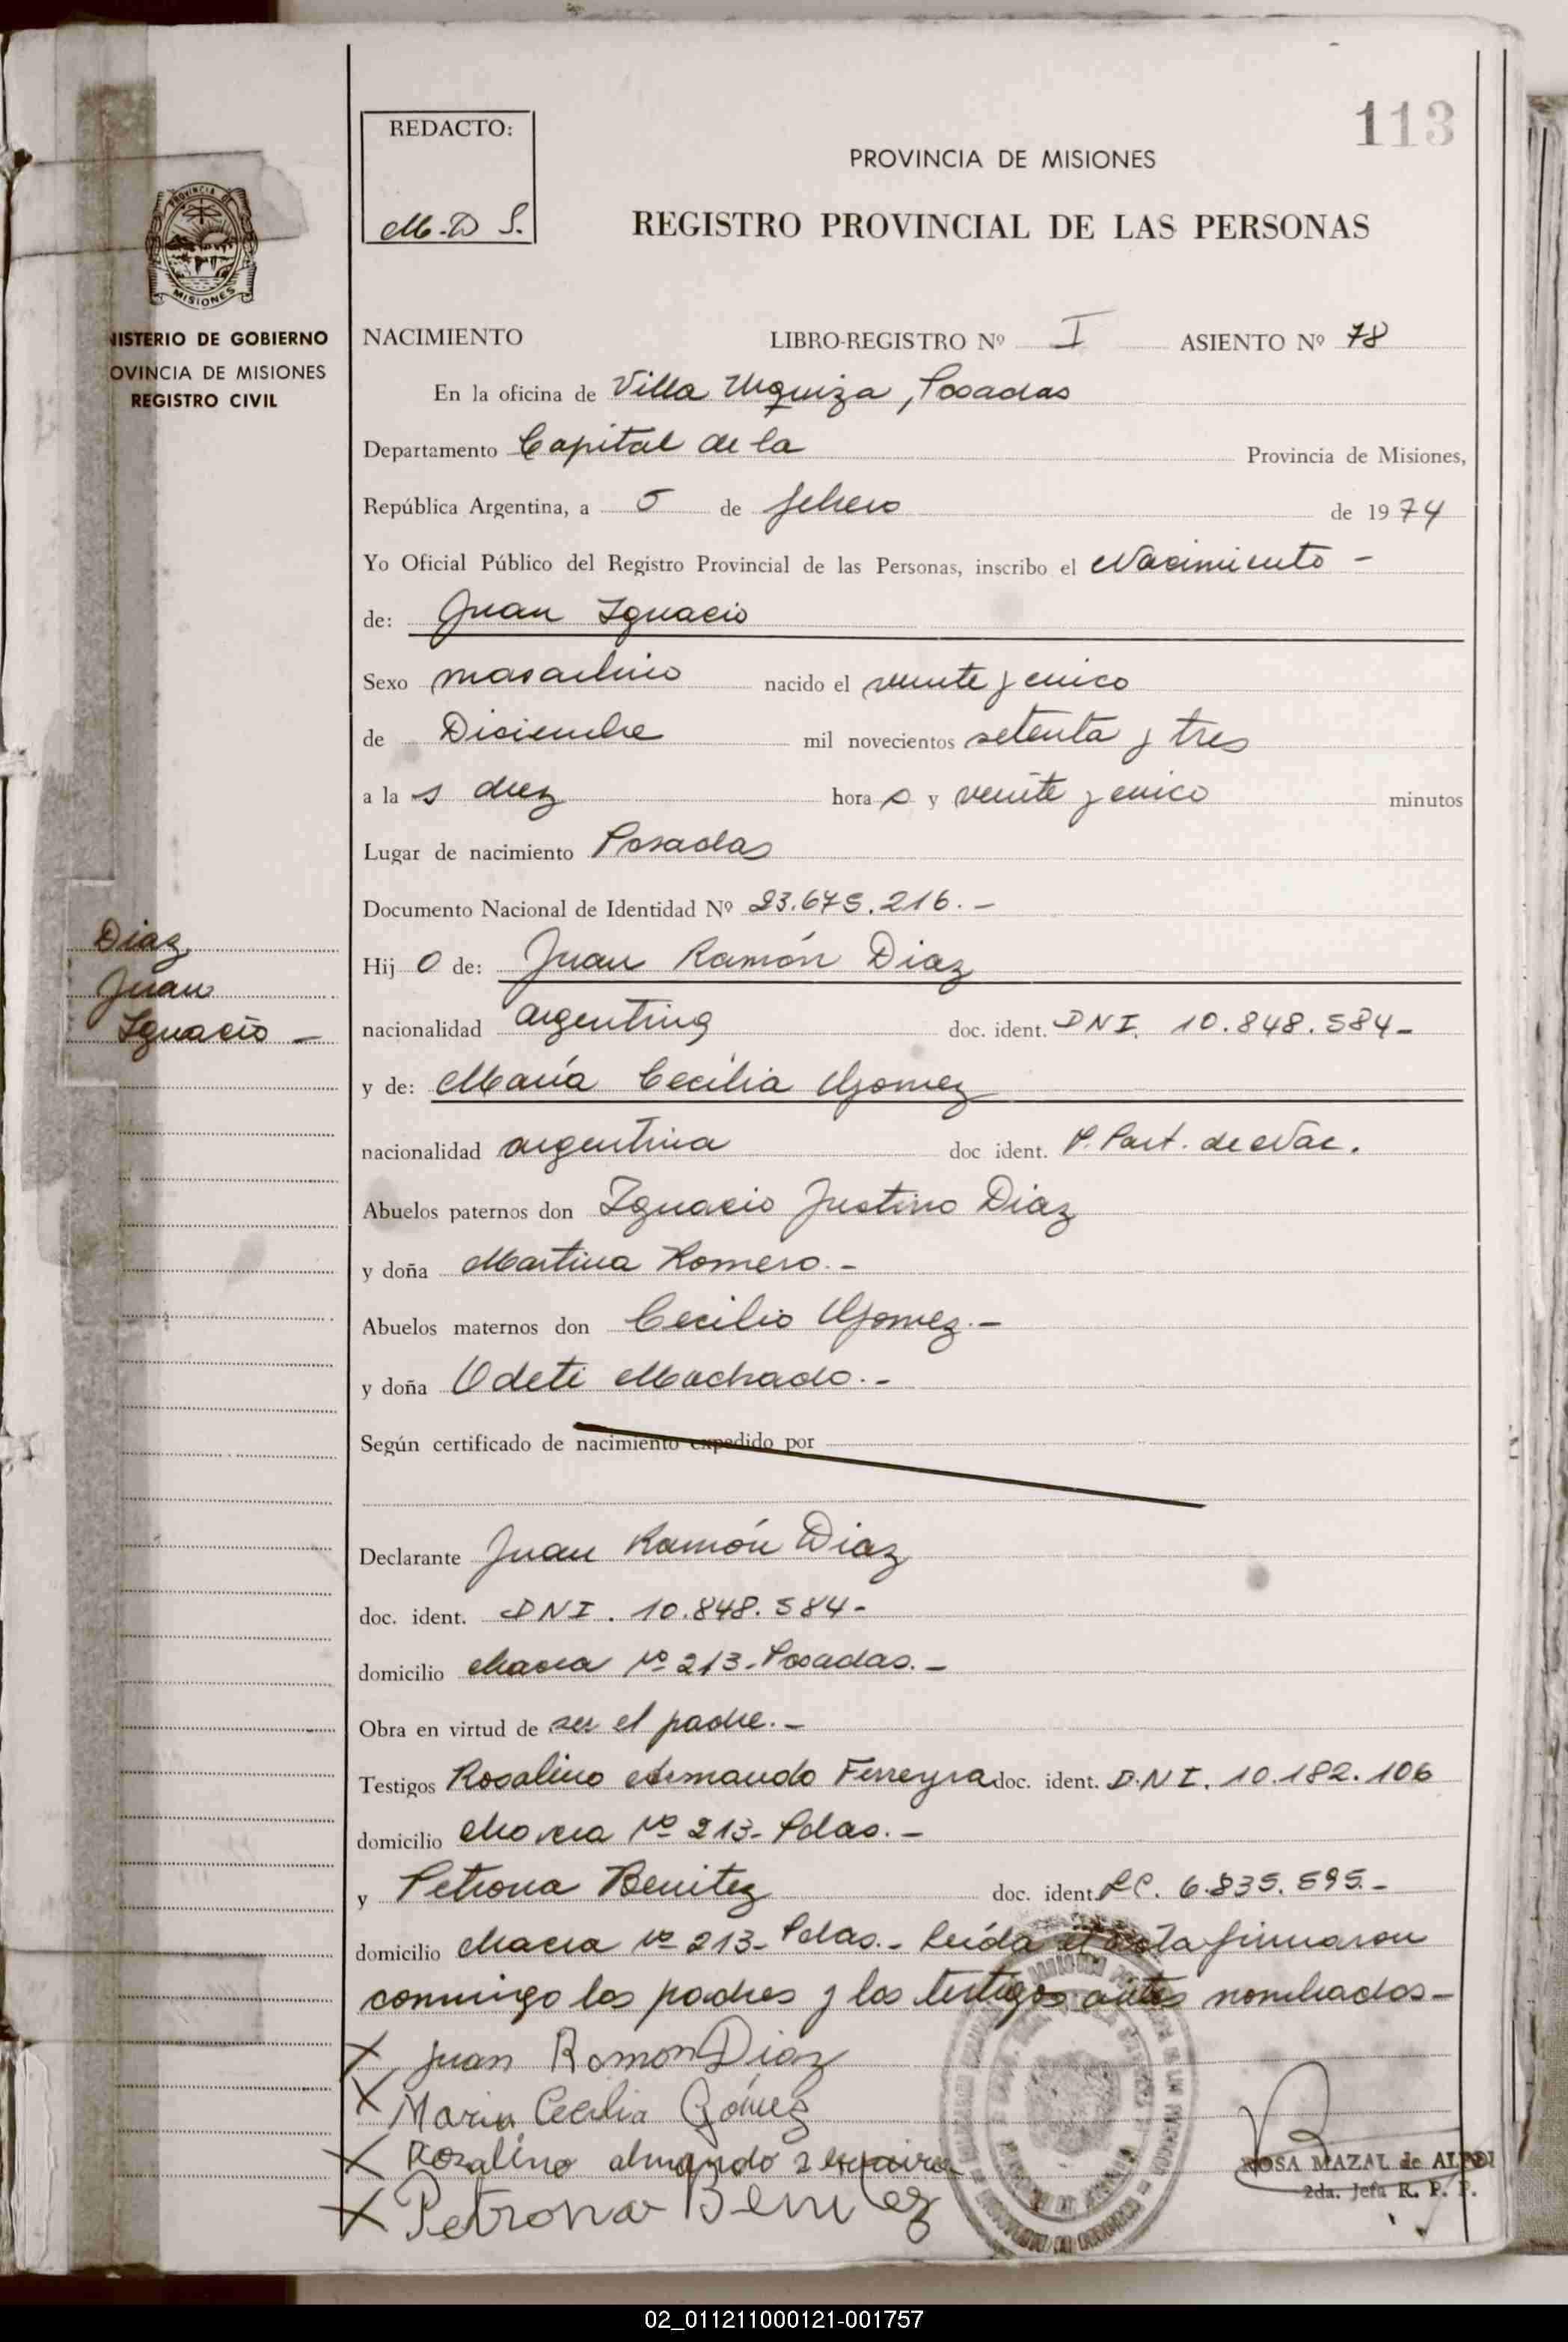 113
REDACTO:
M.D S.
PROVINCIA DE MISIONES
REGISTRO PROVINCIAL DE LAS PERSONAS
PROVINCIA
MISIONES
NISTERIO DE GOBIERNO
OVINCIA DE MISIONES
REGISTRO CIVIL
NACIMIENTO LIBRO-REGISTRO Nº I ASIENTO Nº 78
En la oficina de Villa Urquiza, Posadas
Departamento Capital de la Provincia de Misiones,
República Argentina, a 5 de febrero de 1974
Yo Oficial Público del Registro Provincial de las Personas, inscribo el Nacimiento -
de: Juan Ignacio
Sexo masculino nacido el veinte y cinco
de Diciembre mil novecientos setenta y tres
a la s diez hora s y veinte y cinco minutos
Lugar de nacimiento Posadas
Documento Nacional de Identidad Nº 23.675.216.-
Diaz
Juan
Ignacio -
Hij o de: Juan Ramón Diaz
nacionalidad argentina doc. ident. DNI. 10.848.584-
y de: María Cecilia Gomez
nacionalidad argentina doc ident. P. Part. de Nac.
Abuelos paternos don Ignacio Justino Diaz
y doña Martina Romero.-
Abuelos maternos don Cecilio Gomez.-
y doña Odeti Machado.-
Según certificado de nacimiento expedido por
Declarante Juan Ramón Diaz
doc. ident. DNI. 10.848.584-
domicilio chacra Nº 213-Posadas.-
Obra en virtud de ser el padre.-
Testigos Rosalino Armando Ferreyra doc. ident. D.N.I. 10.182.106
domicilio chacra Nº 213- Pdas.-
y Petrona Benitez doc. ident. LC. 6.835.595.-
domicilio chacra Nº 213- Pdas.- Leída el acta firmaron
conmigo los padres y los testigos antes nombrados-
X Juan Ramon Diaz
X Maria Cecilia Gómez
X Rozalino almando
X Petrona Benitez
ROSA MAZAL de
2da. Jefa R. P. P.
02_011211000121-001757